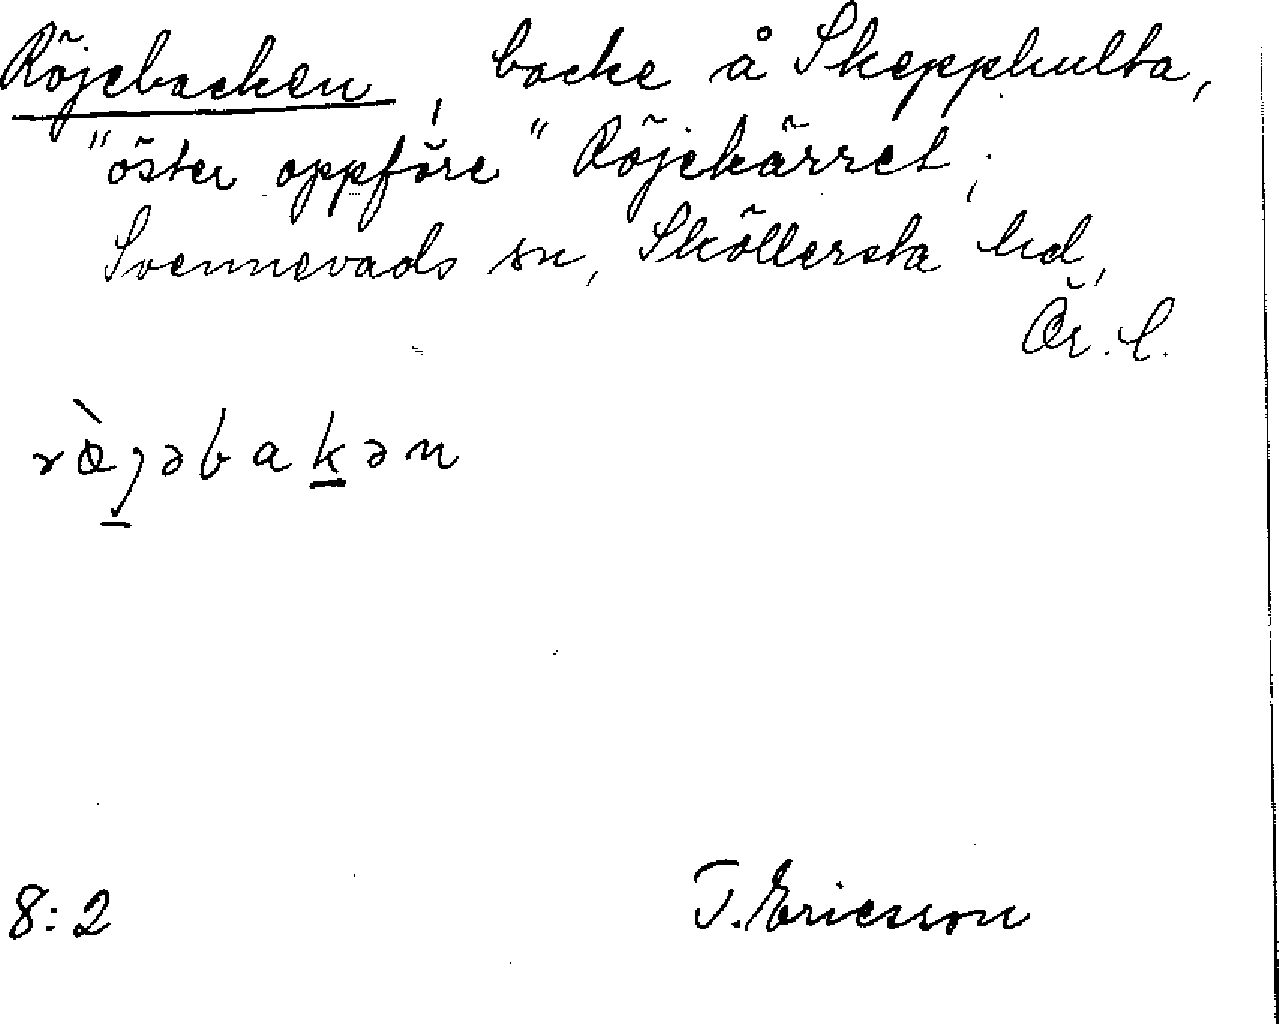 Röjebacken, backe å Skepphulta,
"öster oppföre" Röjekärret,
Svennevads sn, Sköllersta hd,
Ör. l.
rœ̀jəbakən
8:2 T. Ericsson